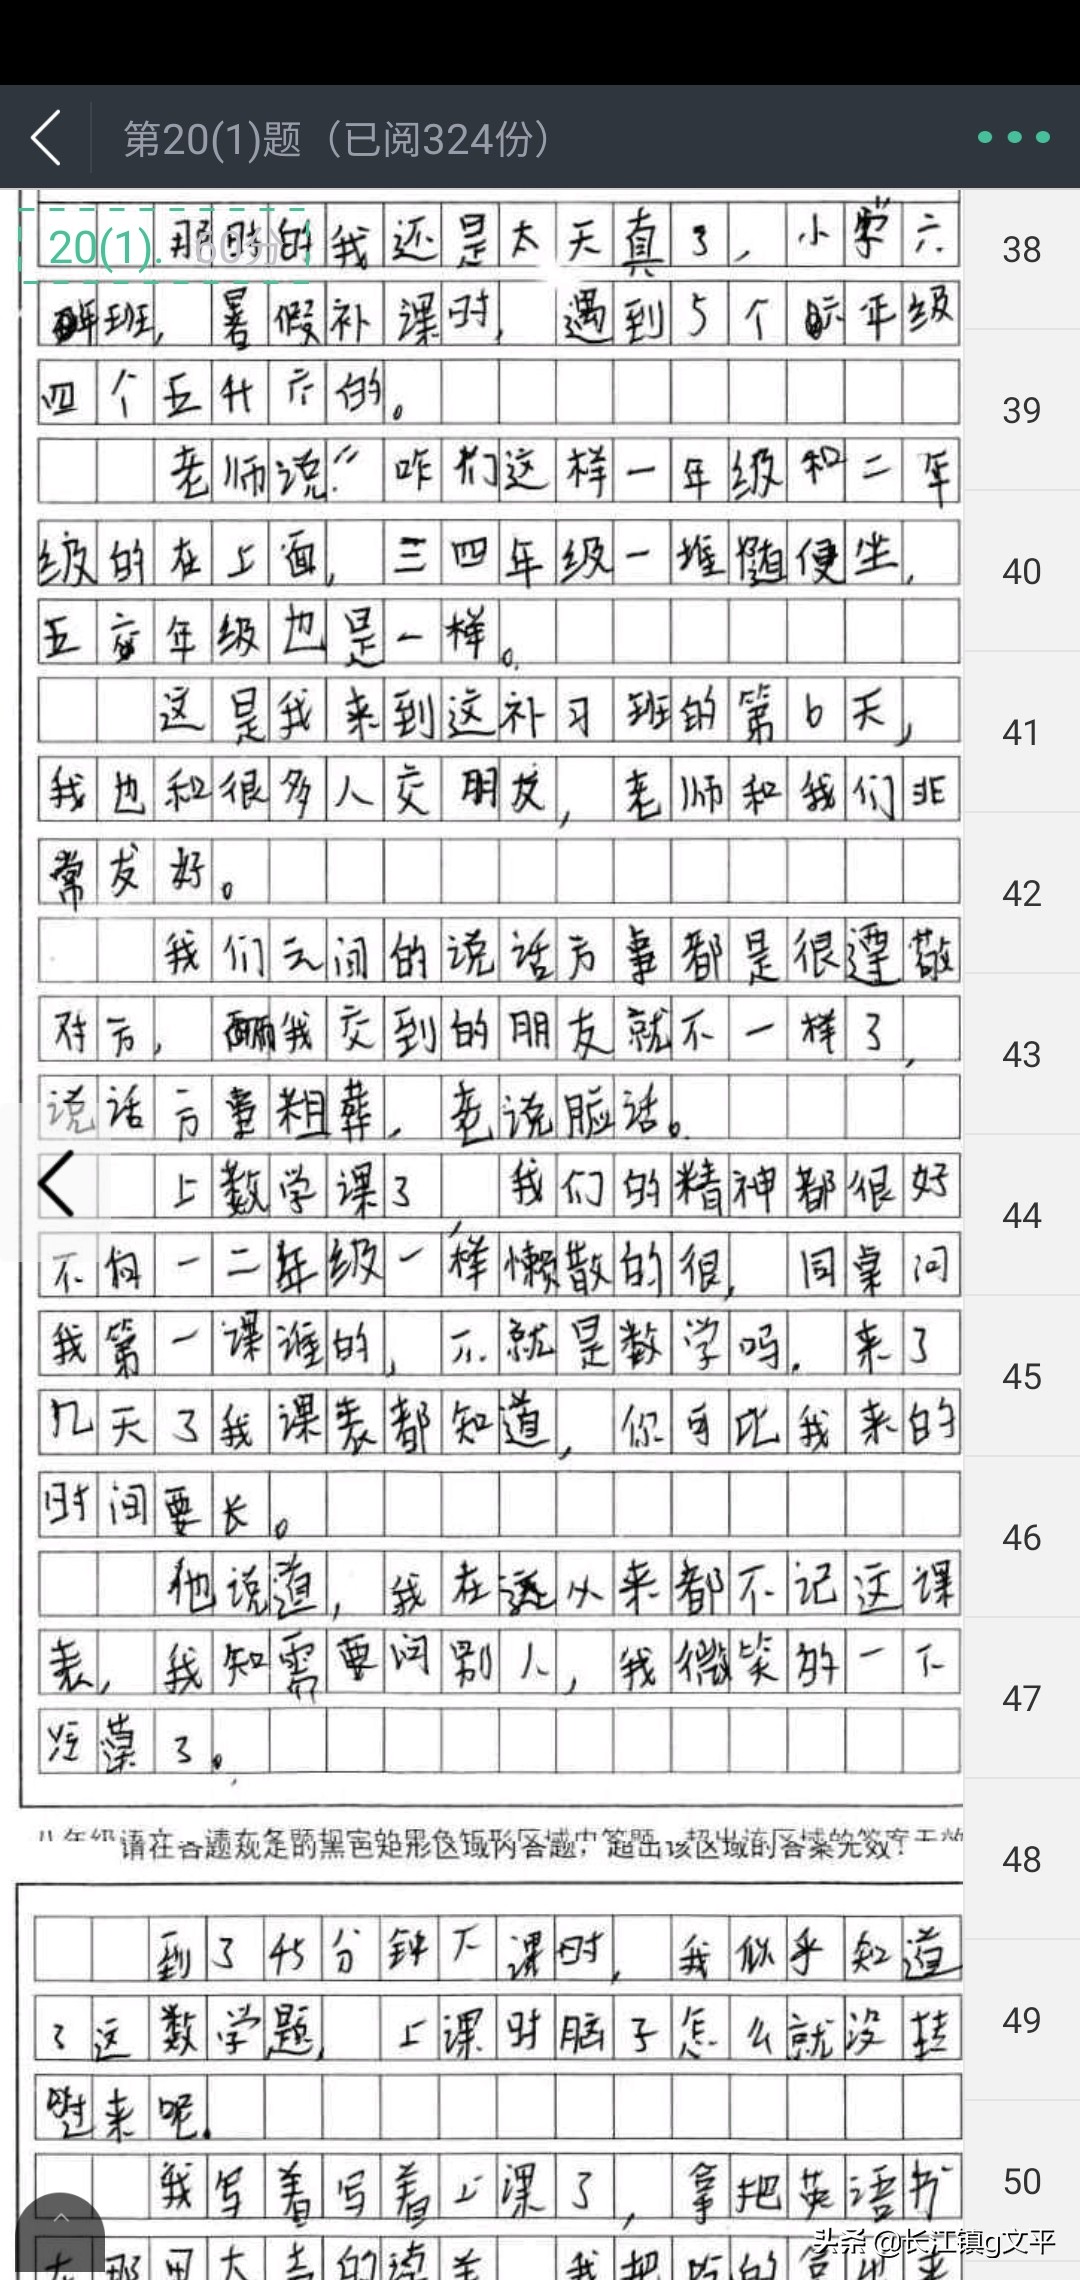 第20(1)题（已阅324份）
20(1). 60分
那时的我还是太天真了，小学六
班，暑假补课时，遇到5个六年级
四个五升六的。
老师说：“咋们这样一年级和二年
级的在上面，三四年级一堆随便坐，
五六年级也是一样。
这是我来到这补习班的第6天，
我也和很多人交朋友，老师和我们非
常友好。
我们之间的说话方事都是很遵敬
对方，我交到的朋友就不一样了，
说话方事粗葬，老说脏话。
上数学课了，我们的精神都很好
不向一二年级一样懒散的很，同桌问
我第一课谁的，不就是数学吗，来了
几天了我课表都知道，你可比我来的
时间要长。
他说道，我在这从来都不记这课
表，我知需要问别人，我微笑的一下
冷漠了。
请在各题规定的黑色矩形区域内答题，超出该区域的答案无效！
到了45分钟下课时，我似乎知道
了这数学题，上课时脑子怎么就没转
过来呢.
我写着写着上课了，拿把英语书
在那里大声的读着 我把吃的拿出来
38
39
40
41
42
43
44
45
46
47
48
49
50
头条 @长江镇g文平